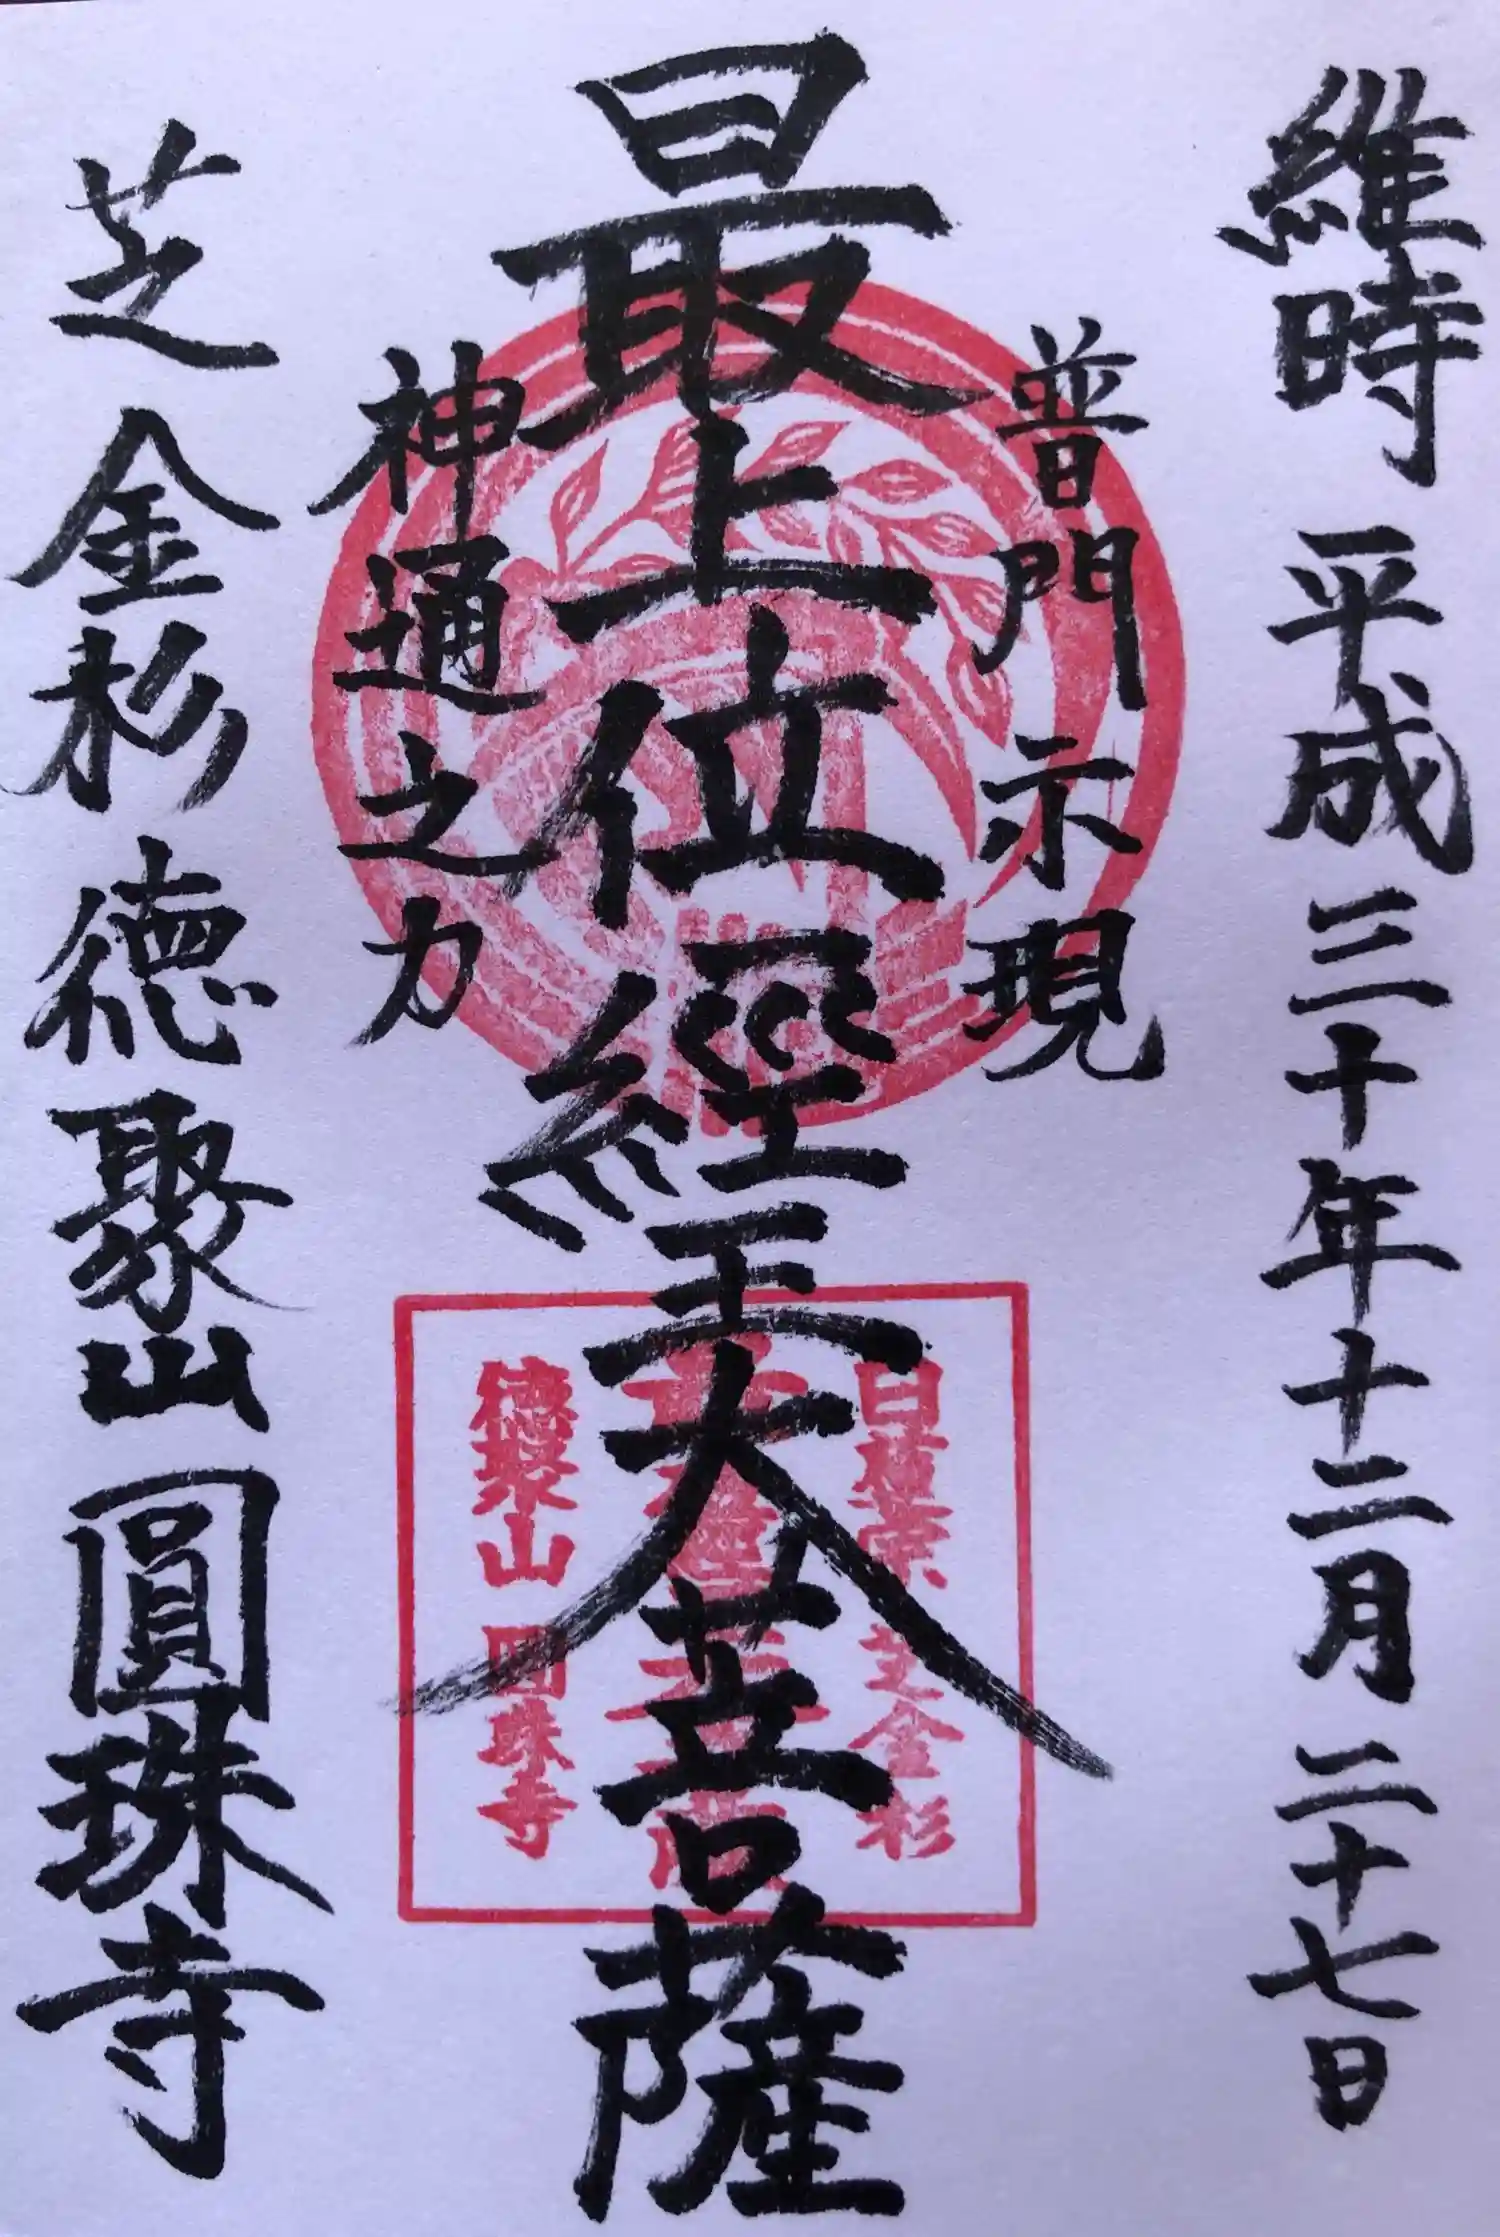 維時 平成三十年十二月二十七日
普門示現
最上位經王大菩薩
神通之力
芝金杉 德聚山 圓珠寺
日蓮宗 芝金杉
德聚山 圓珠寺